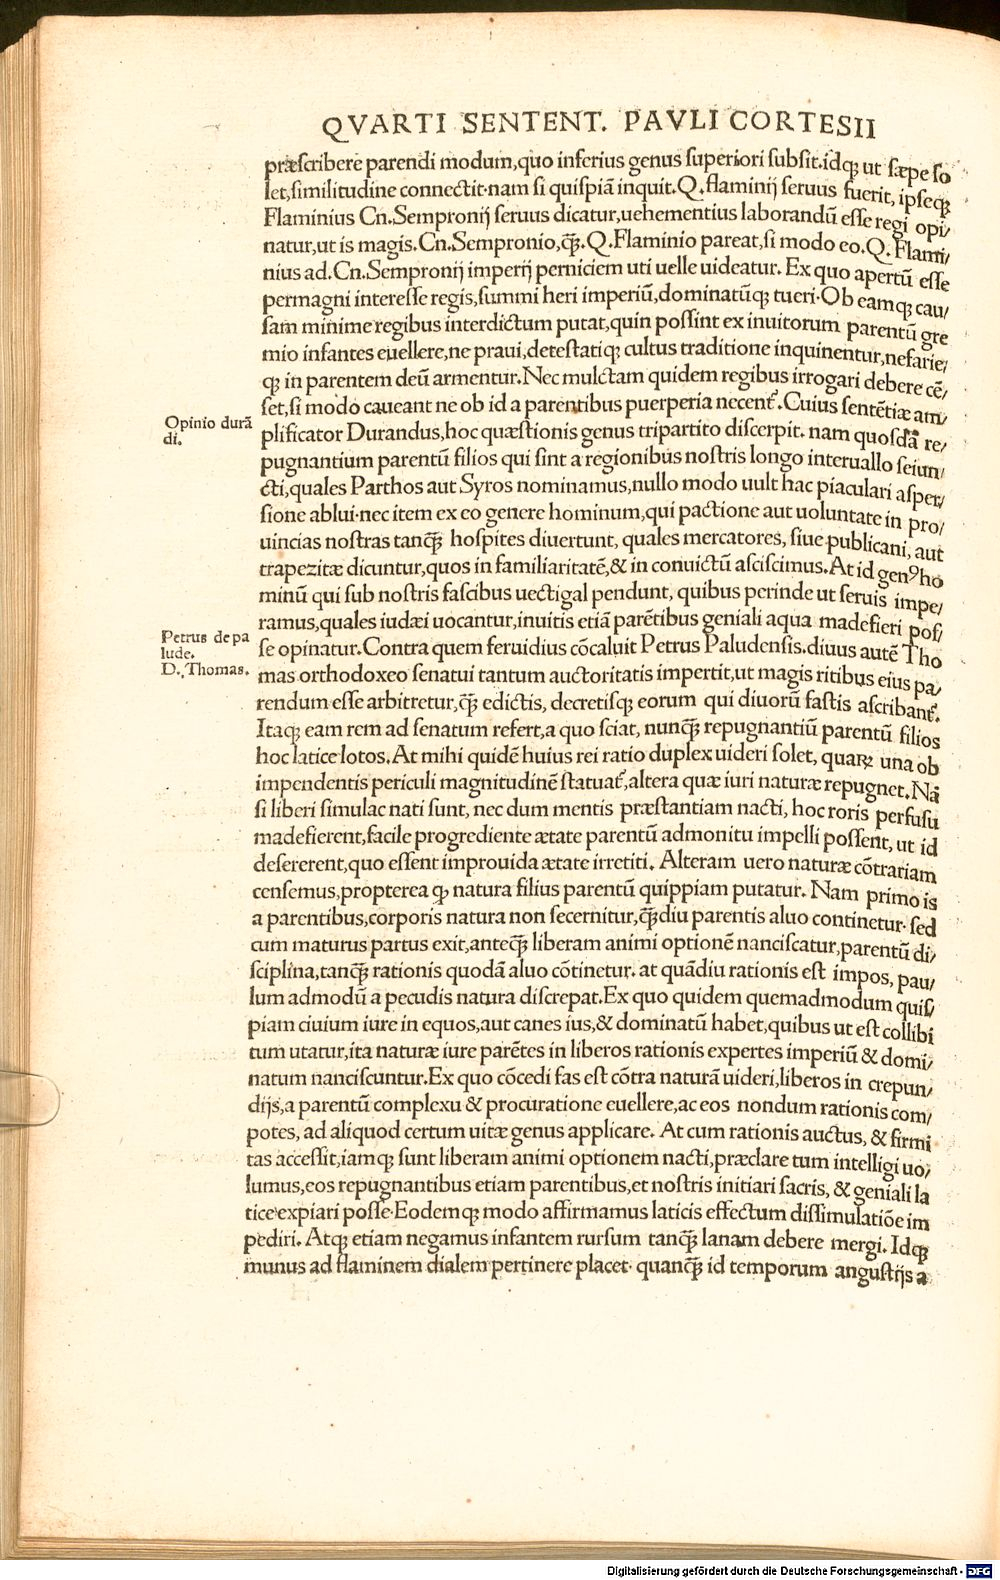 QVARTI SENTENT. PAVLI CORTESII
præscribere parendi modum,quo inferius genus superiori subsit.idq; ut sæpe so
let,similitudine connectit.nam si quispiã inquit.Q.flaminij seruus fuerit, ipseq;
Flaminius Cn.Sempronij seruus dicatur,uehementius laborandũ esse regi opi/
natur,ut is magis.Cn.Sempronio,q̃.Q.Flaminio pareat,si modo eo.Q.Flami/
nius ad.Cn.Sempronij imperij perniciem uti uelle uideatur. Ex quo apertũ esse
permagni interesse regis,summi heri imperiũ,dominatũq; tueri.Ob eamq; cau/
sam minime regibus interdictum putat,quin possint ex inuitorum parentũ gre
mio infantes euellere,ne praui,detestatiq; cultus traditione inquinentur,nefarie/
q; in parentem deũ armentur.Nec mulctam quidem regibus irrogari debere cẽ/
set,si modo caueant ne ob id a parentibus puerperia necent᷑.Cuius sentẽtiæ am/
Opinio durã
di.
plificator Durandus,hoc quæstionis genus tripartito discerpit. nam quosdã re/
pugnantium parentũ filios qui sint a regionibus nostris longo interuallo seiun/
cti,quales Parthos aut Syros nominamus,nullo modo uult hac piaculari asper/
sione ablui.nec item ex eo genere hominum,qui pactione aut uoluntate in pro/
uincias nostras tanq̃ hospites diuertunt, quales mercatores, siue publicani, aut
trapezitæ dicuntur,quos in familiaritatẽ,& in conuictũ asciscimus.At id genꝰ ho
minũ qui sub nostris fascibus uectigal pendunt, quibus perinde ut seruis impe/
ramus,quales iudæi uocantur,inuitis etiã parẽtibus geniali aqua madefieri pos/
Petrus de pa
lude.
D. Thomas.
se opinatur.Contra quem feruidius cõcaluit Petrus Paludensis.diuus autẽ Tho
mas orthodoxeo senatui tantum auctoritatis impertit,ut magis ritibus eius pa/
rendum esse arbitretur,q̃ edictis, decretisq; eorum qui diuorũ fastis ascribant᷑.
Itaq; eam rem ad senatum refert,a quo sciat, nunq̃ repugnantiũ parentũ filios
hoc latice lotos.At mihi quidẽ huius rei ratio duplex uideri solet, quaꝝ una ob
impendentis periculi magnitudinẽ statuat᷑,altera quæ iuri naturæ repugnet.Nã
si liberi simulac nati sunt, nec dum mentis præstantiam nacti, hoc roris perfusu
madefierent,facile progrediente ætate parentũ admonitu impelli possent, ut id
desererent,quo essent improuida ætate irretiti. Alteram uero naturæ cõtrariam
censemus,propterea ꝙ natura filius parentũ quippiam putatur. Nam primo is
a parentibus,corporis natura non secernitur,q̃diu parentis aluo continetur. sed
cum maturus partus exit,anteq̃ liberam animi optionẽ nanciscatur,parentũ di/
sciplina,tanq̃ rationis quodã aluo cõtinetur. at quãdiu rationis est impos, pau/
lum admodũ a pecudis natura discrepat.Ex quo quidem quemadmodum quis/
piam ciuium iure in equos,aut canes ius,& dominatũ habet,quibus ut est collibi
tum utatur,ita naturæ iure parẽtes in liberos rationis expertes imperiũ & domi/
natum nanciscuntur.Ex quo cõcedi fas est cõtra naturã uideri,liberos in crepun/
dijs,a parentũ complexu & procuratione euellere,ac eos nondum rationis com/
potes, ad aliquod certum uitæ genus applicare. At cum rationis auctus, & firmi
tas accessit,iamq; sunt liberam animi optionem nacti,præclare tum intelligi uo/
lumus,eos repugnantibus etiam parentibus,et nostris initiari sacris, & geniali la
tice expiari posse.Eodemq; modo affirmamus laticis effectum dissimulatiõe im
pediri. Atq; etiam negamus infantem rursum tanq̃ lanam debere mergi. Idq;
munus ad flaminem dialem pertinere placet. quanq̃ id temporum angustijs a
Digitalisierung gefördert durch die Deutsche Forschungsgemeinschaft - DFG